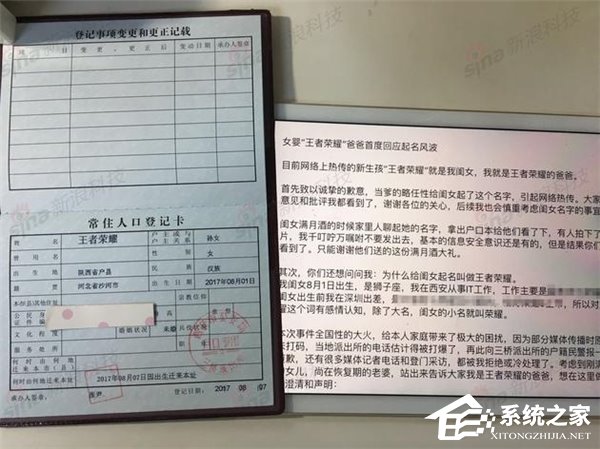 登记事项变更和更正记载
项 目 变更、更正后 变动日期 承办人签章
常住人口登记卡
姓 名 王者荣耀 户主或与户主关系 孙女
曾用名 性别 女
出生地 陕西省户县 民族 汉族
籍贯 河北省沙河市 出生日期 2017年08月01日
本市(县)其他住址 宗教信仰
公民身
证件编
文化程度 婚姻状况 未婚 兵役状况
服务处所
何时由何地迁来本市(县)
何时由何地迁来本址 2017年08月07日因出生迁来本址
登记日期: 2017 08 07
女婴“王者荣耀”爸爸首度回应起名风波
目前网络上热传的新生孩“王者荣耀”就是我闺女，我就是王者荣耀的爸爸，
首先致以诚挚的歉意，当爹的略任性给闺女起了这个名字，引起网络热传。大家
意见和批评我都看到了，谢谢各位的关心，后续我也会慎重考虑闺女名字的事宜
闺女满月酒的时候家里人聊起她的名字，拿出户口本给他们看了下，有人拍了下
片，我千叮咛万嘱咐不要发出去，基本的信息安全意识还是有的，但是结果你们
看到了。只能谢谢他们送的这份满月酒大礼。
其次，你们还想问我：为什么给闺女起名叫做王者荣耀。
我闺女8月1日出生，是狮子座，我在西安从事IT工作，工作主要是
闺女出生前我在深圳出差，
耀这个词有感情认知，除了大名，闺女的小名就叫荣耀。
本次事件全国性的大火，给本人家庭带来了极大的困扰，因为部分媒体传播时原
未打码，当地派出所的电话估计得被打爆了，再此向三桥派出所的户籍民警报一
歉，还有很多媒体记者电话和登门采访，都被我拒绝或冷处理了。考虑到刚满
女儿，尚在恢复期的老婆，站出来告诉大家我是王者荣耀的爸爸，想在这里做
澄清和声明：
sina新浪科技
系统之家
XITONGZHIJIA.NET